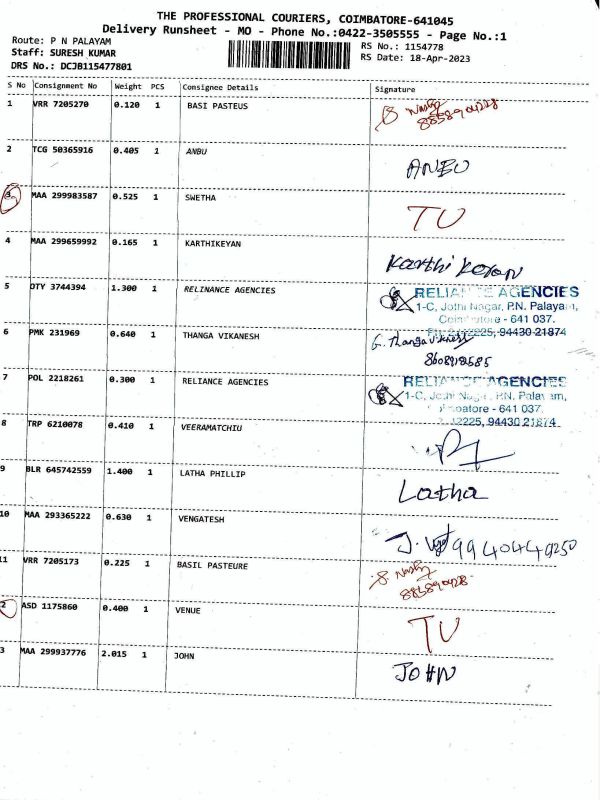 THE PROFESSIONAL COURIERS, COIMBATORE-641045
Delivery Runsheet - MO - Phone No.:0422-3505555 - Page No.:1
Route: P N PALAYAM
Staff: SURESH KUMAR
DRS No.: DCJB115477801
RS No.: 1154778
RS Date: 18-Apr-2023
S No Consignment No Weight PCS Consignee Details Signature
1 VRR 7205270 0.120 1 BASI PASTEUS
2 TCG 50365916 0.405 1 ANBU ANBU
3 MAA 299983587 0.525 1 SWETHA TU
4 MAA 299659992 0.165 1 KARTHIKEYAN Karthi Keyan
5 OTY 3744394 1.300 1 RELINANCE AGENCIES RELIANCE AGENCIES
1-C, Jothi Nagar, P.N. Palayam,
Coimbatore - 641 037.
2225, 94430 21874
6 PMK 231969 0.640 1 THANGA VIKANESH G. Thanga
7 POL 2218261 0.300 1 RELIANCE AGENCIES RELIANCE AGENCIES
1-C, Jothi Nagar, P.N. Palayam,
Coimbatore - 641 037.
2225, 94430 21874
8 TRP 6210078 0.410 1 VEERAMATCHIU
9 BLR 645742559 1.400 1 LATHA PHILLIP Latha
10 MAA 293365222 0.630 1 VENGATESH J.
11 VRR 7205173 0.225 1 BASIL PASTEURE
2 ASD 1175860 0.400 1 VENUE TU
3 MAA 299937776 2.015 1 JOHN JOHN